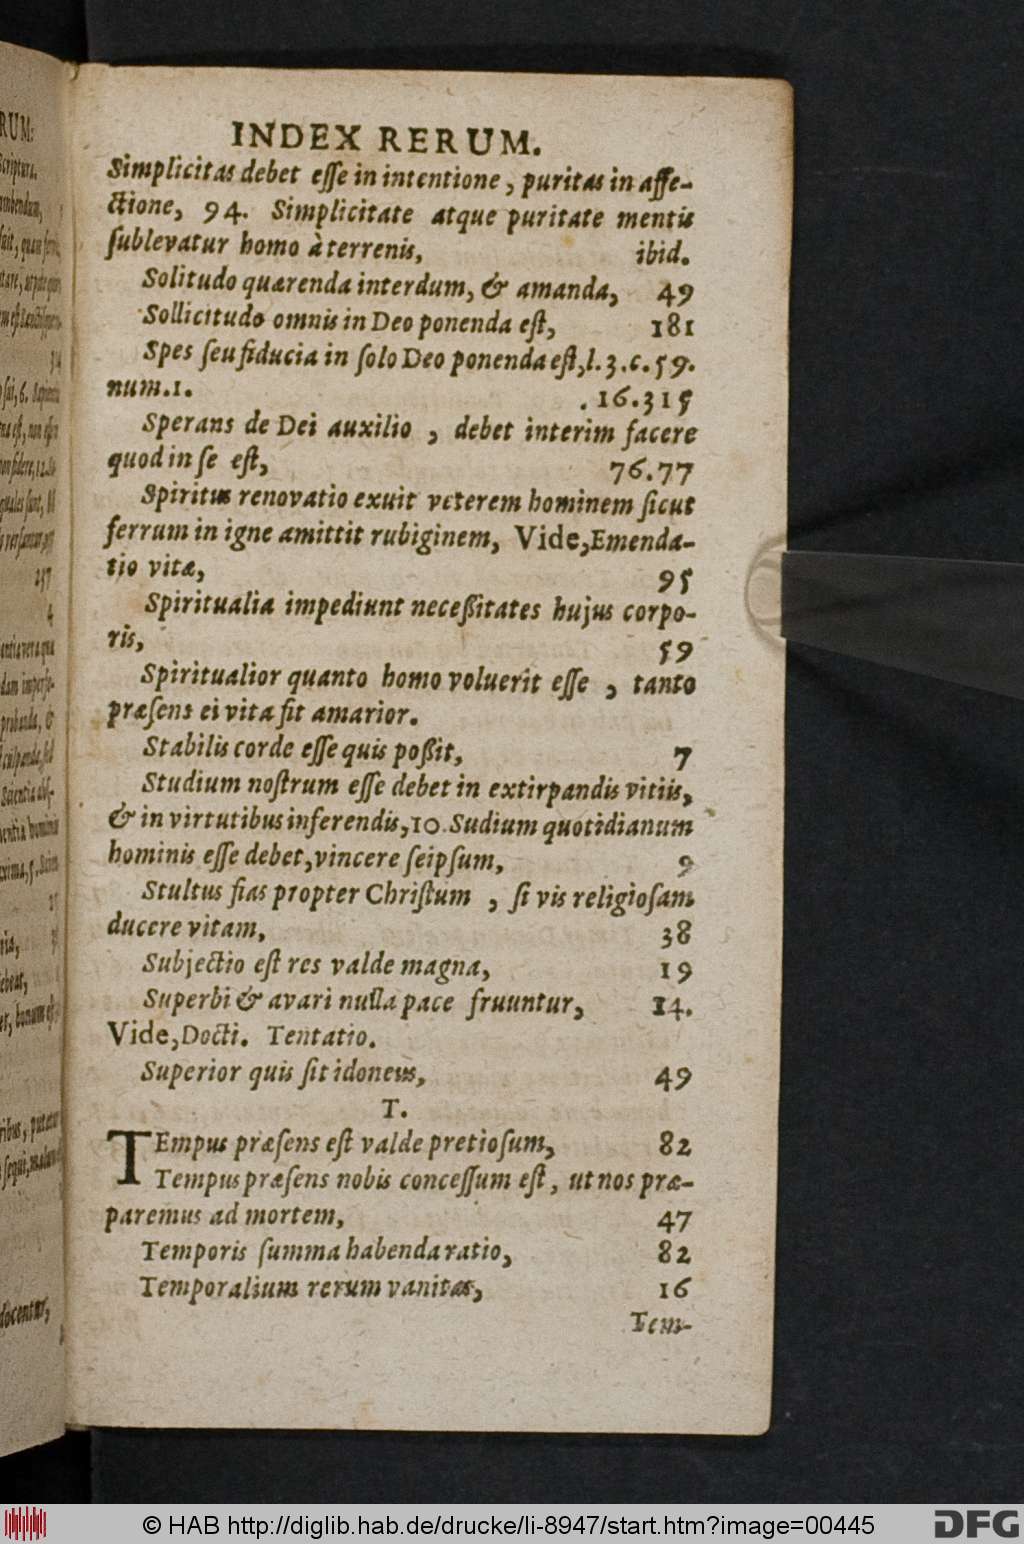 INDEX RERUM.
Simplicitas debet eſſe in intentione, puritas in affe-
ctione, 94. Simplicitate atque puritate mentis
ſublevatur homo à terrenis, ibid.
Solitudo quærenda interdum, & amanda, 49
Sollicitudo omnis in Deo ponenda eſt, 181
Spes ſeu fiducia in ſolo Deo ponenda eſt, l. 3. c. 59.
num. 1. .16.315
Sperans de Dei auxilio, debet interim facere
quod in ſe eſt, 76.77
Spiritus renovatio exuit veterem hominem ſicut
ferrum in igne amittit rubiginem, Vide, Emenda-
tio vitæ, 95
Spiritualia impediunt neceßitates hujus corpo-
ris, 59
Spiritualior quanto homo voluerit eſſe, tanto
præſens ei vita fit amarior.
Stabilis corde eſſe quis poßit, 7
Studium noſtrum eſſe debet in extirpandis vitiis,
& in virtutibus inferendis, 10. Sudium quotidianum
hominis eſſe debet, vincere ſeipſum, 9
Stultus fias propter Chriſtum, ſi vis religioſam
ducere vitam, 38
Subjectio eſt res valde magna, 19
Superbi & avari nulla pace fruuntur, 14.
Vide, Docti. Tentatio.
Superior quis ſit idoneus, 49
T.
TEmpus præſens eſt valde pretioſum, 82
Tempus præſens nobis conceſſum eſt, ut nos præ-
paremus ad mortem, 47
Temporis ſumma habenda ratio, 82
Temporalium rerum vanitas, 16
Tem-
© HAB http://diglib.hab.de/drucke/li-8947/start.htm?image=00445
DFG